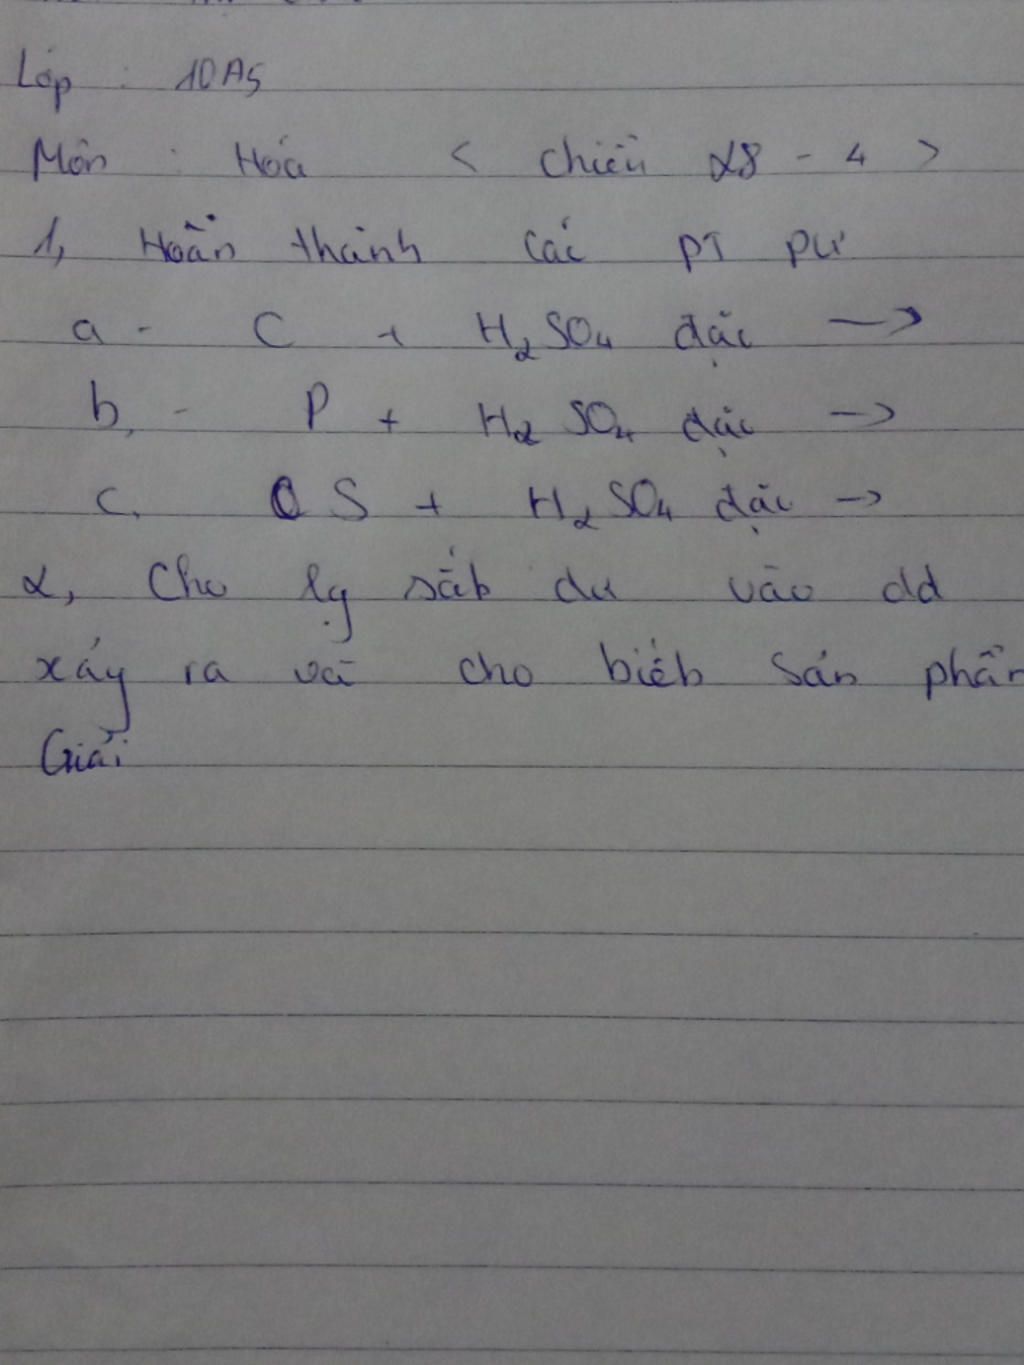 Lớp : 10A5
Môn : Hóa < Chiều 28 - 4 >
1, Hoàn thành các PT PƯ
a - C + H2SO4 đặc →
b, - P + H2SO4 đặc →
c. S + H2SO4 đặc →
2, Cho lg sắt dư vào dd
xảy ra và cho biết sản phẩm
Giải